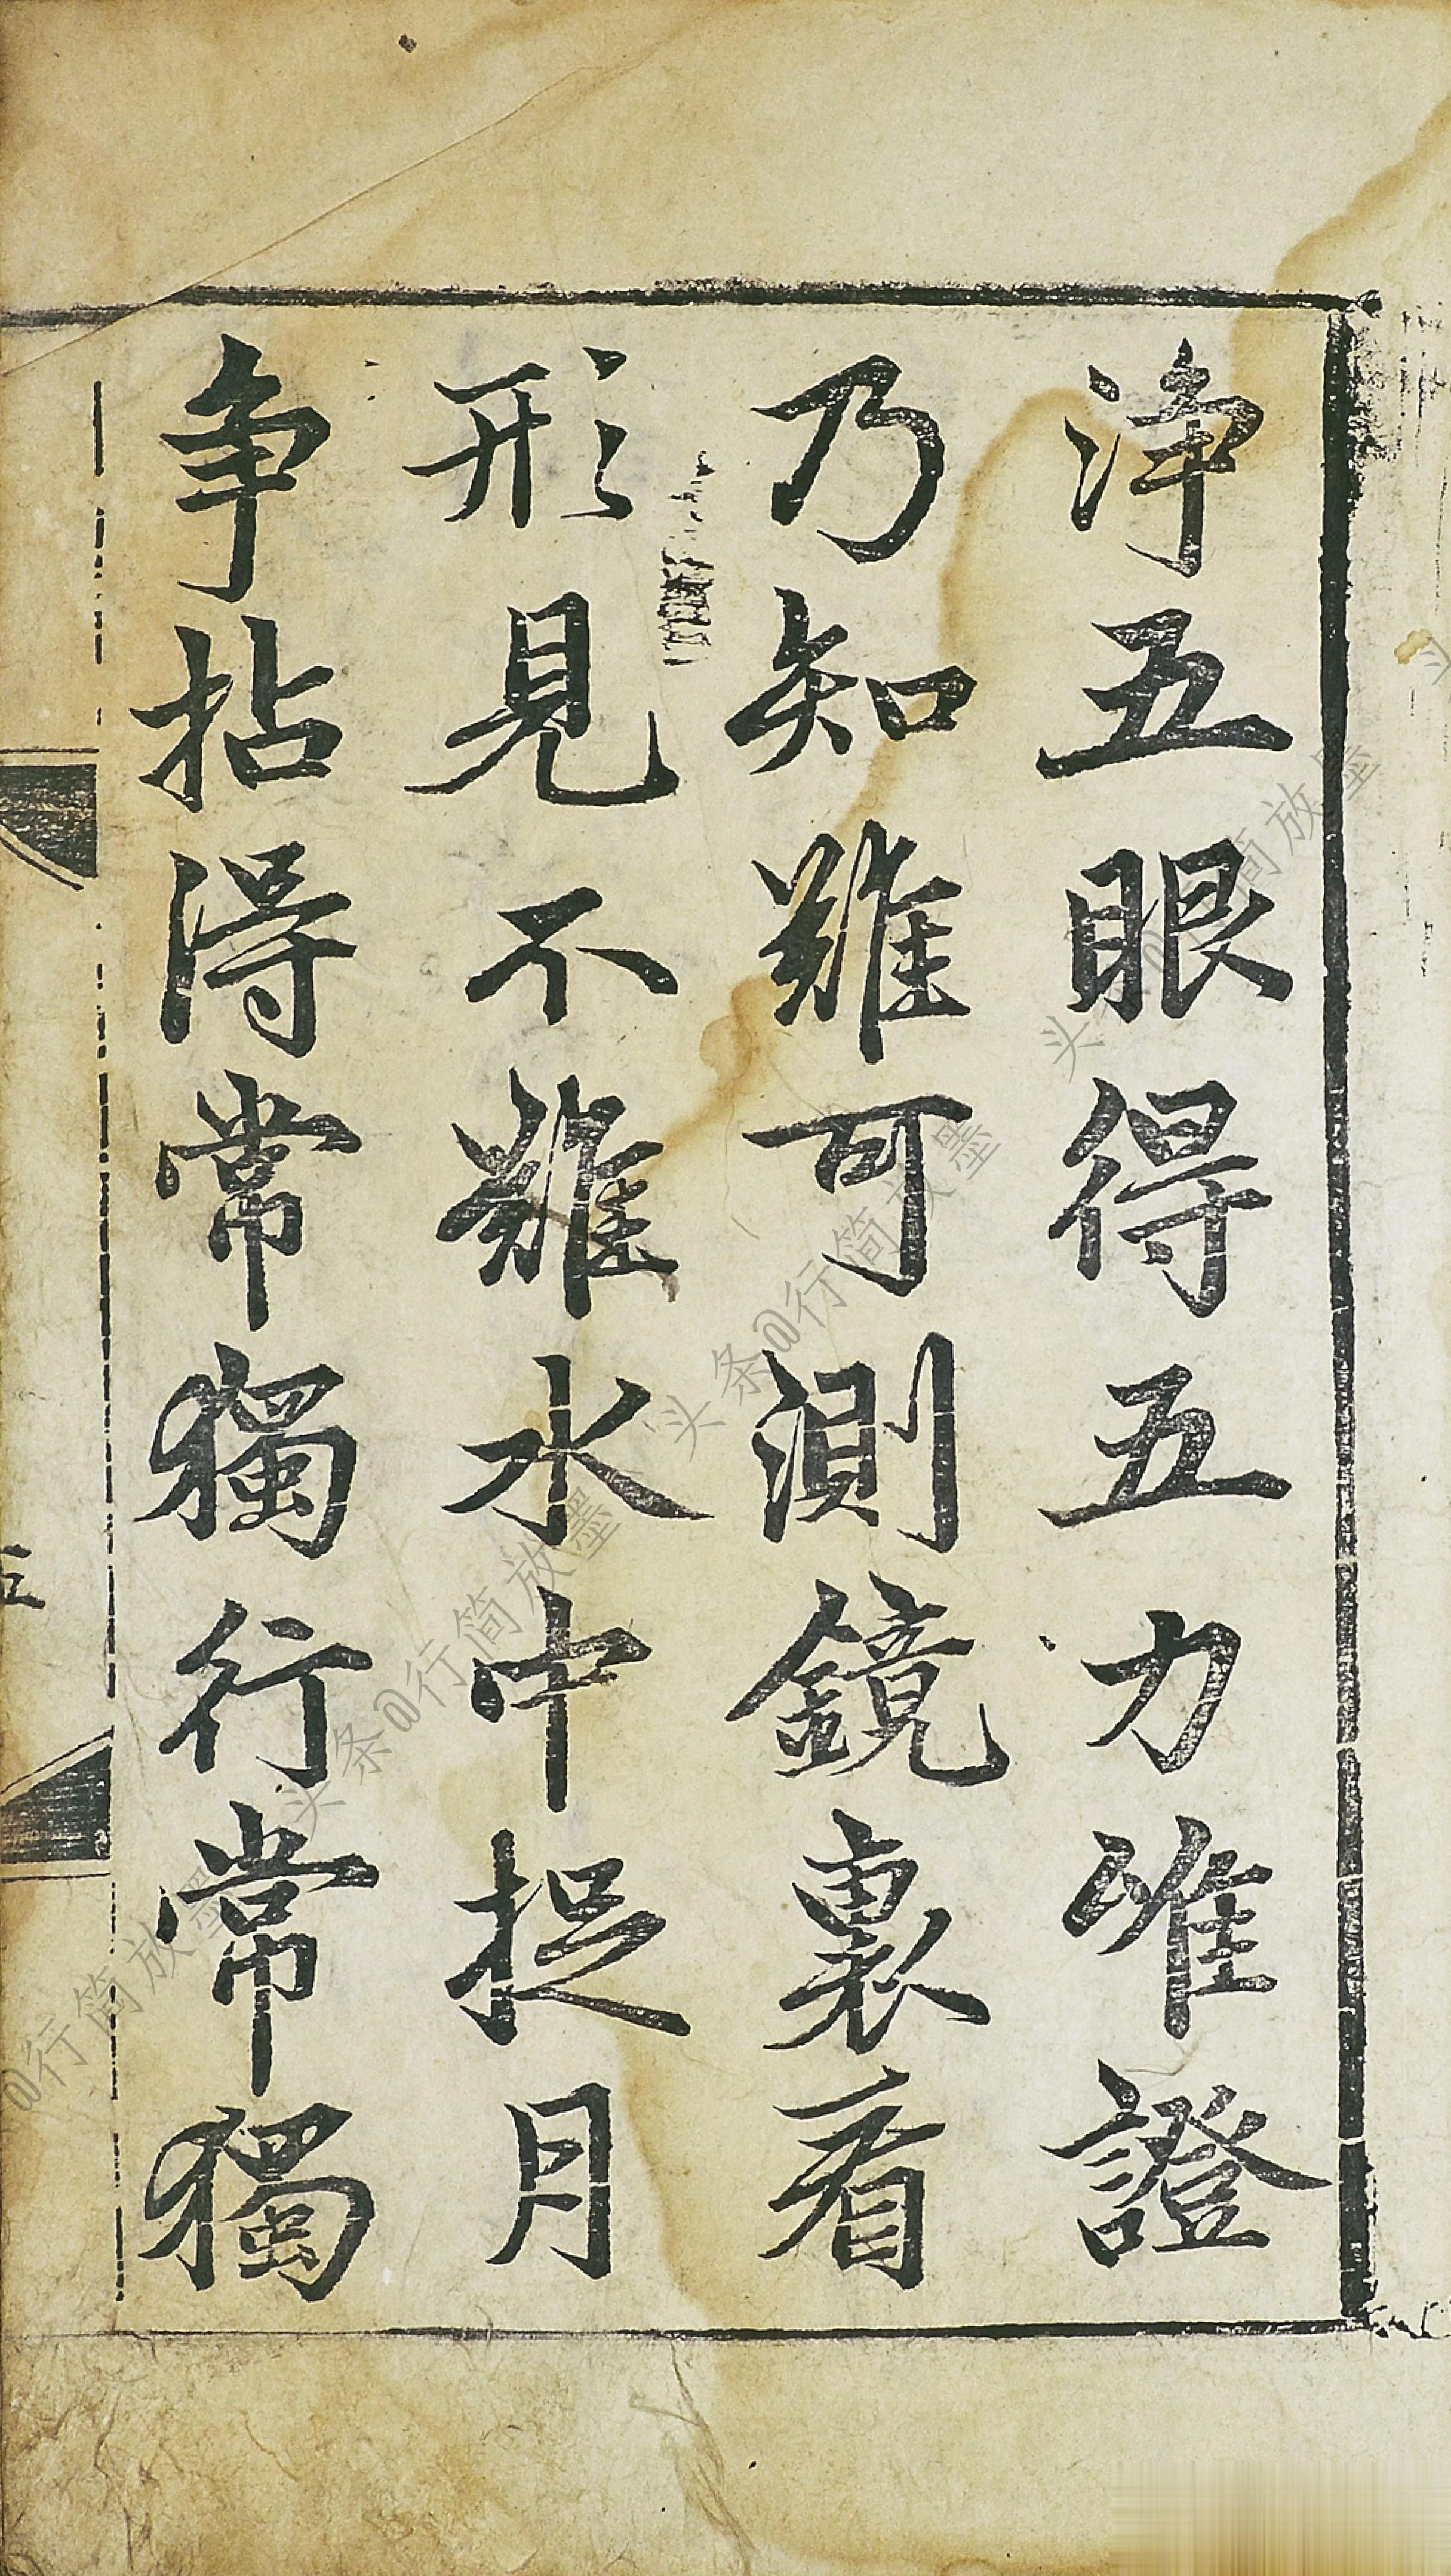 淨五眼得五力唯證
乃知難可測鏡裏看
形見不難水中捉月
争拈得常獨行常獨
五
头条@行简放墨
头条@行简放墨
头条@行简放墨
@行简放墨
头